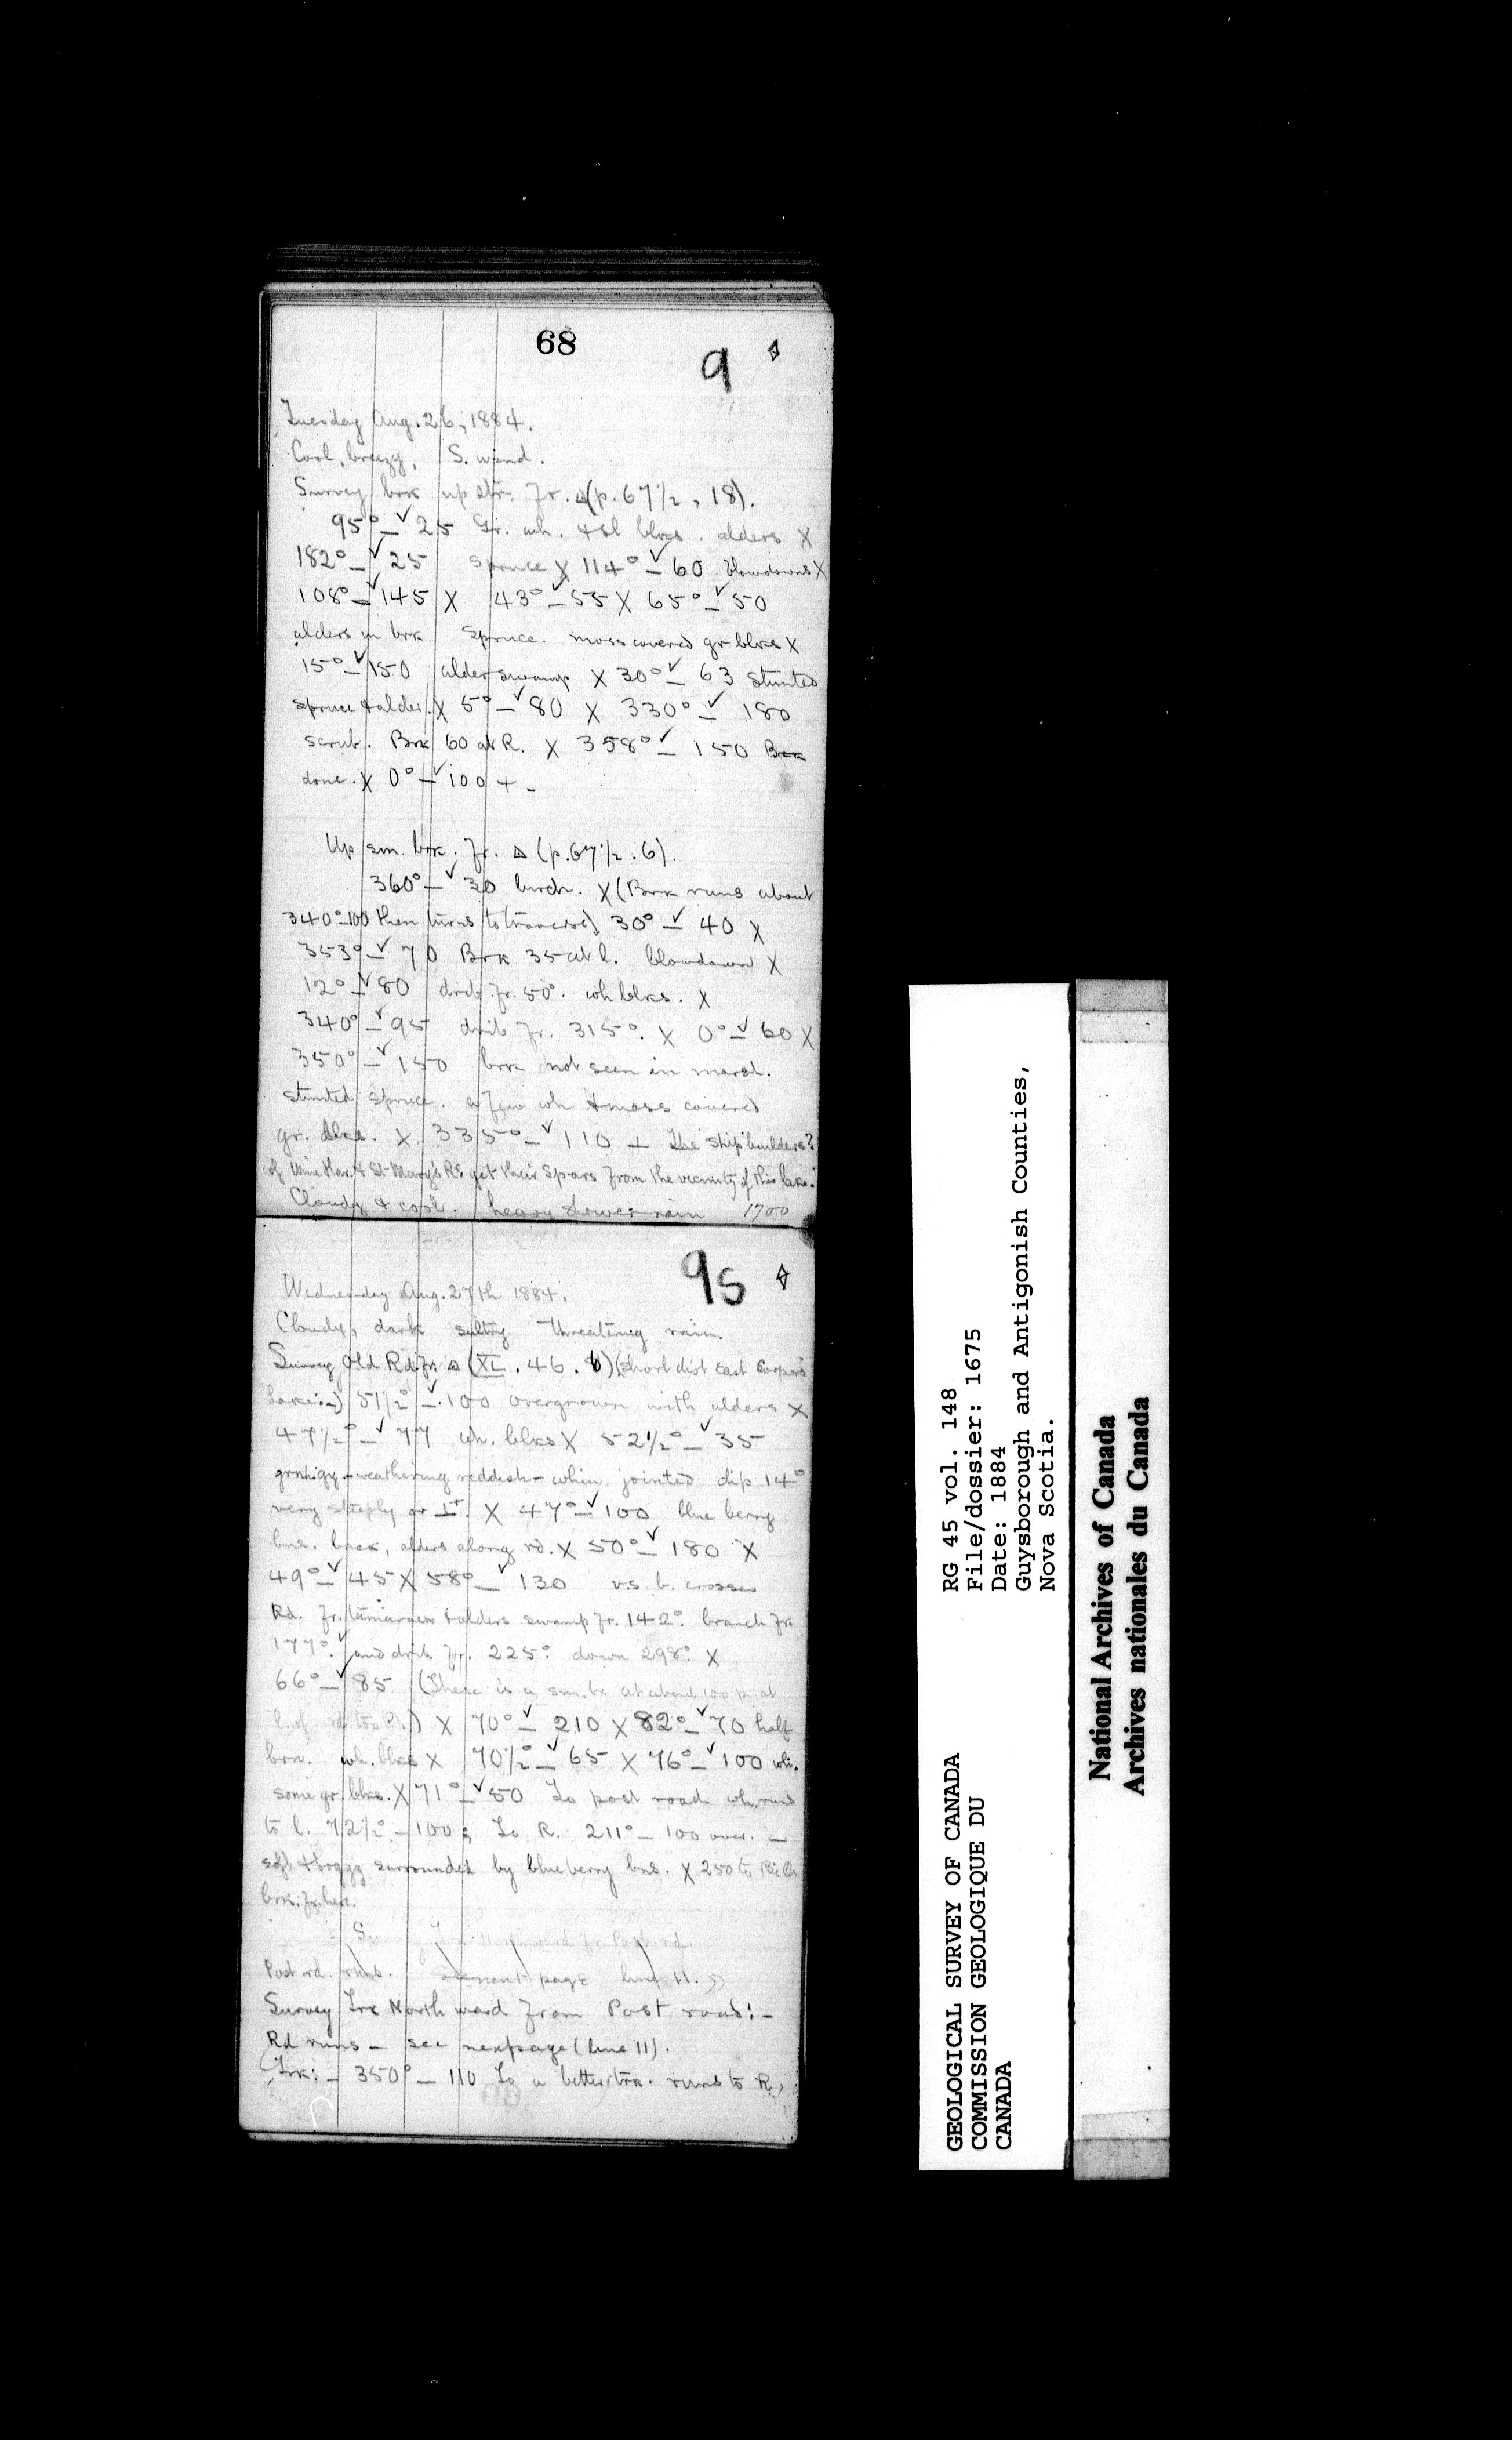 68
9
Tuesday Aug. 26, 1884.
Cool, breezy, S. wind.
Survey brk up str. fr. △(p. 67½, 18).
95° – 25 Gr. wh. & sl blks. alders X
182° – 25 Spruce X 114° – 60 blowdowns X
108° – 145 X 43° – 55 X 65° – 50
alders in brk Spruce. moss covered gr blks X
15° – 150 alder swamp X 30° – 63 stunted
spruce & alder. X 5° – 80 X 330° – 180
scrub. Brk 60 at R. X 358° – 150 Brk
done. X 0° – 100 + –
Up sm. brk. fr. △ (p. 67½. 6).
360° – 30 birch. X (Brk runs about
340° – 100 then turns to traverse) 30° – 40 X
353° – 70 Brk 35 at l. blowdown X
12° – 80 drib fr. 50°. wh blks. X
340° – 95 drib fr. 315°. X 0° – 60 X
350° – 150 brk not seen in marsh.
stunted spruce. a few wh & moss covered
gr. blks. X 335° – 110 + The ship builders?
of Wine Har. & St Mary's R. get their spars from the vicinity of this lake.
Cloudy & cool. heavy shower rain 1700
9s
Wednesday Aug. 27th 1884,
Cloudy, dark sultry threatening rain.
Survey Old Rd. fr. △ (XL. 46. 6) (short dist East
Lake:–) 51½° – 100 overgrown with alders X
47½° – 77 wh. blks X 52½° – 35
weathering reddish – whin jointed dip 14°
very steeply or ⊥. X 47° – 100 blue berry
bns. back, alders along rd. X 50° – 180 X
49° – 45 X 58° – 130 v.s. b. crosses
Rd. fr. tamarack & alders swamp fr. 142°. branch fr.
177°. and drib. fr. 225°. down 298°. X
66° – 85 (There is a sm. br. at about 100 p. at
l. of rd to R.) X 70° – 210 X 82° – 70 half
brn. wh. blks X 70½° – 65 X 76° – 100 wh.
some gr. blks. X 71° – 50 To post road wh. runs
to l. 72½° – 100; To R. 211° – 100 over. –
soft & boggy surrounded by blueberry bns. X 250 to
brk. fr. here.
Northward fr. Post rd.
Post rd. runs. page line 11.
Survey Trk Northward from Post road:–
Rd runs – see next page (line 11).
(Trk:– 350° – 110 To a better trk. runs to R,
RG 45 vol. 148
File/dossier: 1675
Date: 1884
Guysborough and Antigonish Counties,
Nova Scotia.
GEOLOGICAL SURVEY OF CANADA
COMMISSION GEOLOGIQUE DU
CANADA
National Archives of Canada
Archives nationales du Canada